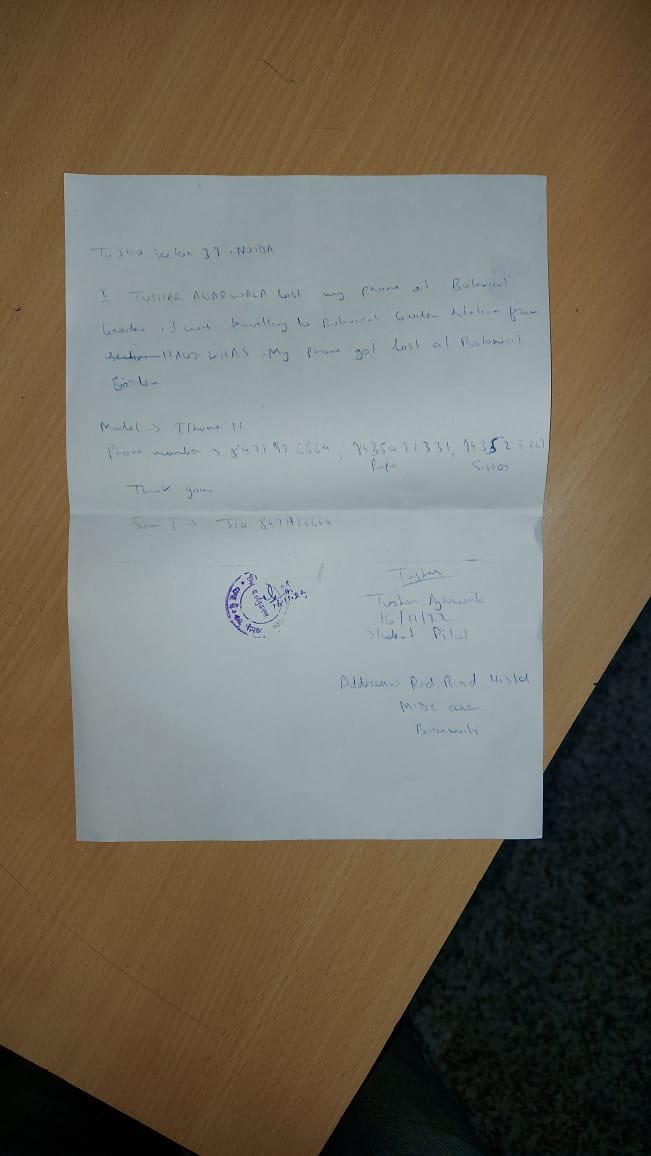 Sector 37, NOIDA
I TUSHAR AGARWALA lost my phone at Botanical
Garden. I was travelling to Botanical Garden station from
HAUZ KHAS. My phone got lost at Botanical
Garden
Model → IPhone 11
Phone number →
Papa Sister
Thank you
Sim I → Jio
Tushar
Tushar Agarwala
16/11/22
Student Pilot
Address → Red Bird Hostel
MIDC area
Baramati